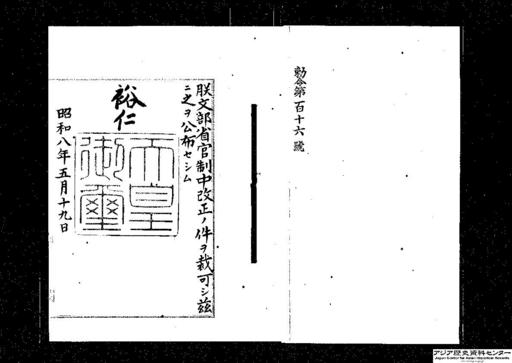 勅令第百十六號
朕文部省官制中改正ノ件ヲ裁可シ茲
ニ之ヲ公布セシム
裕仁
天皇
御璽
昭和八年五月十九日
アジア歴史資料センター
Japan Center for Asian Historical Records